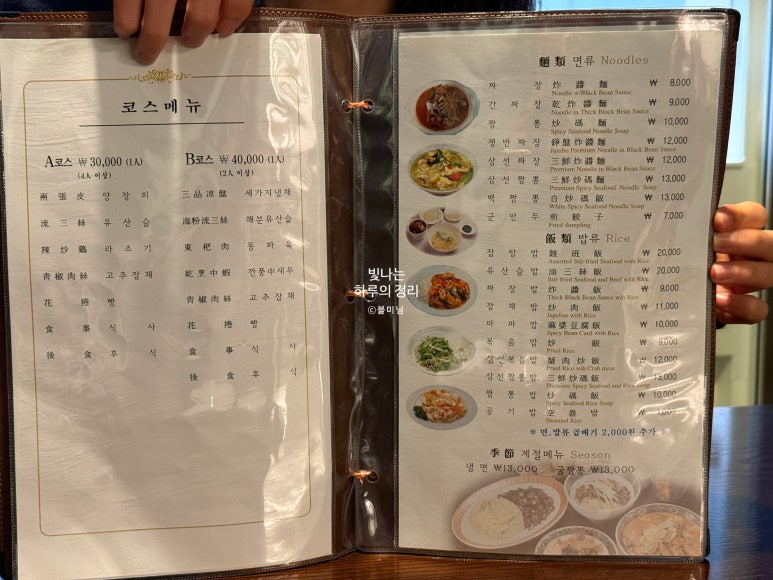 코스메뉴
A코스 ₩30,000 (1人)
(4人 이상)
兩張皮 양장피
流三絲 유산슬
辣炒鷄 라조기
靑椒肉絲 고추잡채
花捲 빵
食事 식사
後食 후식
B코스 ₩40,000 (1人)
(2人 이상)
三品凉盤 세가지냉채
海粉流三絲 해분유산슬
東坡肉 동파육
乾烹中蝦 깐풍中새우
靑椒肉絲 고추잡채
花捲 빵
食事 식사
後食 후식
빛나는
하루의 정리
©봄미닝
麵類 면류 Noodles
짜장 炸醬麵 ₩ 8,000
Noodle w/Black Bean Sauce
간짜장 乾炸醬麵 ₩ 9,000
Noodle in Thick Black Bean Sauce
짬뽕 炒碼麵 ₩ 10,000
Spicy Seafood Noodle Soup
쟁반짜장 錚盤炸醬麵 ₩ 12,000
Jumbo Premium Noodle in Black Bean Sauce
삼선짜장 三鮮炸醬麵 ₩ 12,000
Premium Noodle in Black Bean Sauce
삼선짬뽕 三鮮炒碼麵 ₩ 13,000
Premium Spicy Seafood Noodle Soup
백짬뽕 白炒碼飯 ₩ 13,000
White Spicy Seafood Noodle Soup
군만두 煎餃子 ₩ 7,000
Fried dumpling
飯類 밥류 Rice
잡탕밥 雜班飯 ₩ 20,000
Assorted Stir-fried Seafood with Rice
유산슬밥 油三絲飯 ₩ 20,000
Stir-fried Seafood and Beef with Rice
짜장밥 炸醬飯 ₩ 9,000
Thick Black Bean Sauce with Rice
잡채밥 炒肉飯 ₩ 11,000
Japchae with Rice
마파밥 麻婆豆腐飯 ₩ 10,000
Spicy Bean Curd with Rice
볶음밥 炒飯 ₩ 9,000
Fried Rice
삼선볶음밥 蟹肉炒飯 ₩ 12,000
Fried Rice with Crab meat
삼선짬뽕밥 三鮮炒碼飯 ₩ 13,000
Premium Spicy Seafood and Rice Soup
짬뽕밥 炒碼飯 ₩ 10,000
Spicy Seafood Rice Soup
공기밥 空器밥 ₩ 1,001
Steamed Rice
※ 면,밥류 곱배기 2,000원 추가 ※
季節 계절메뉴 Season
냉면 ₩13,000 굴짬뽕 ₩13,000